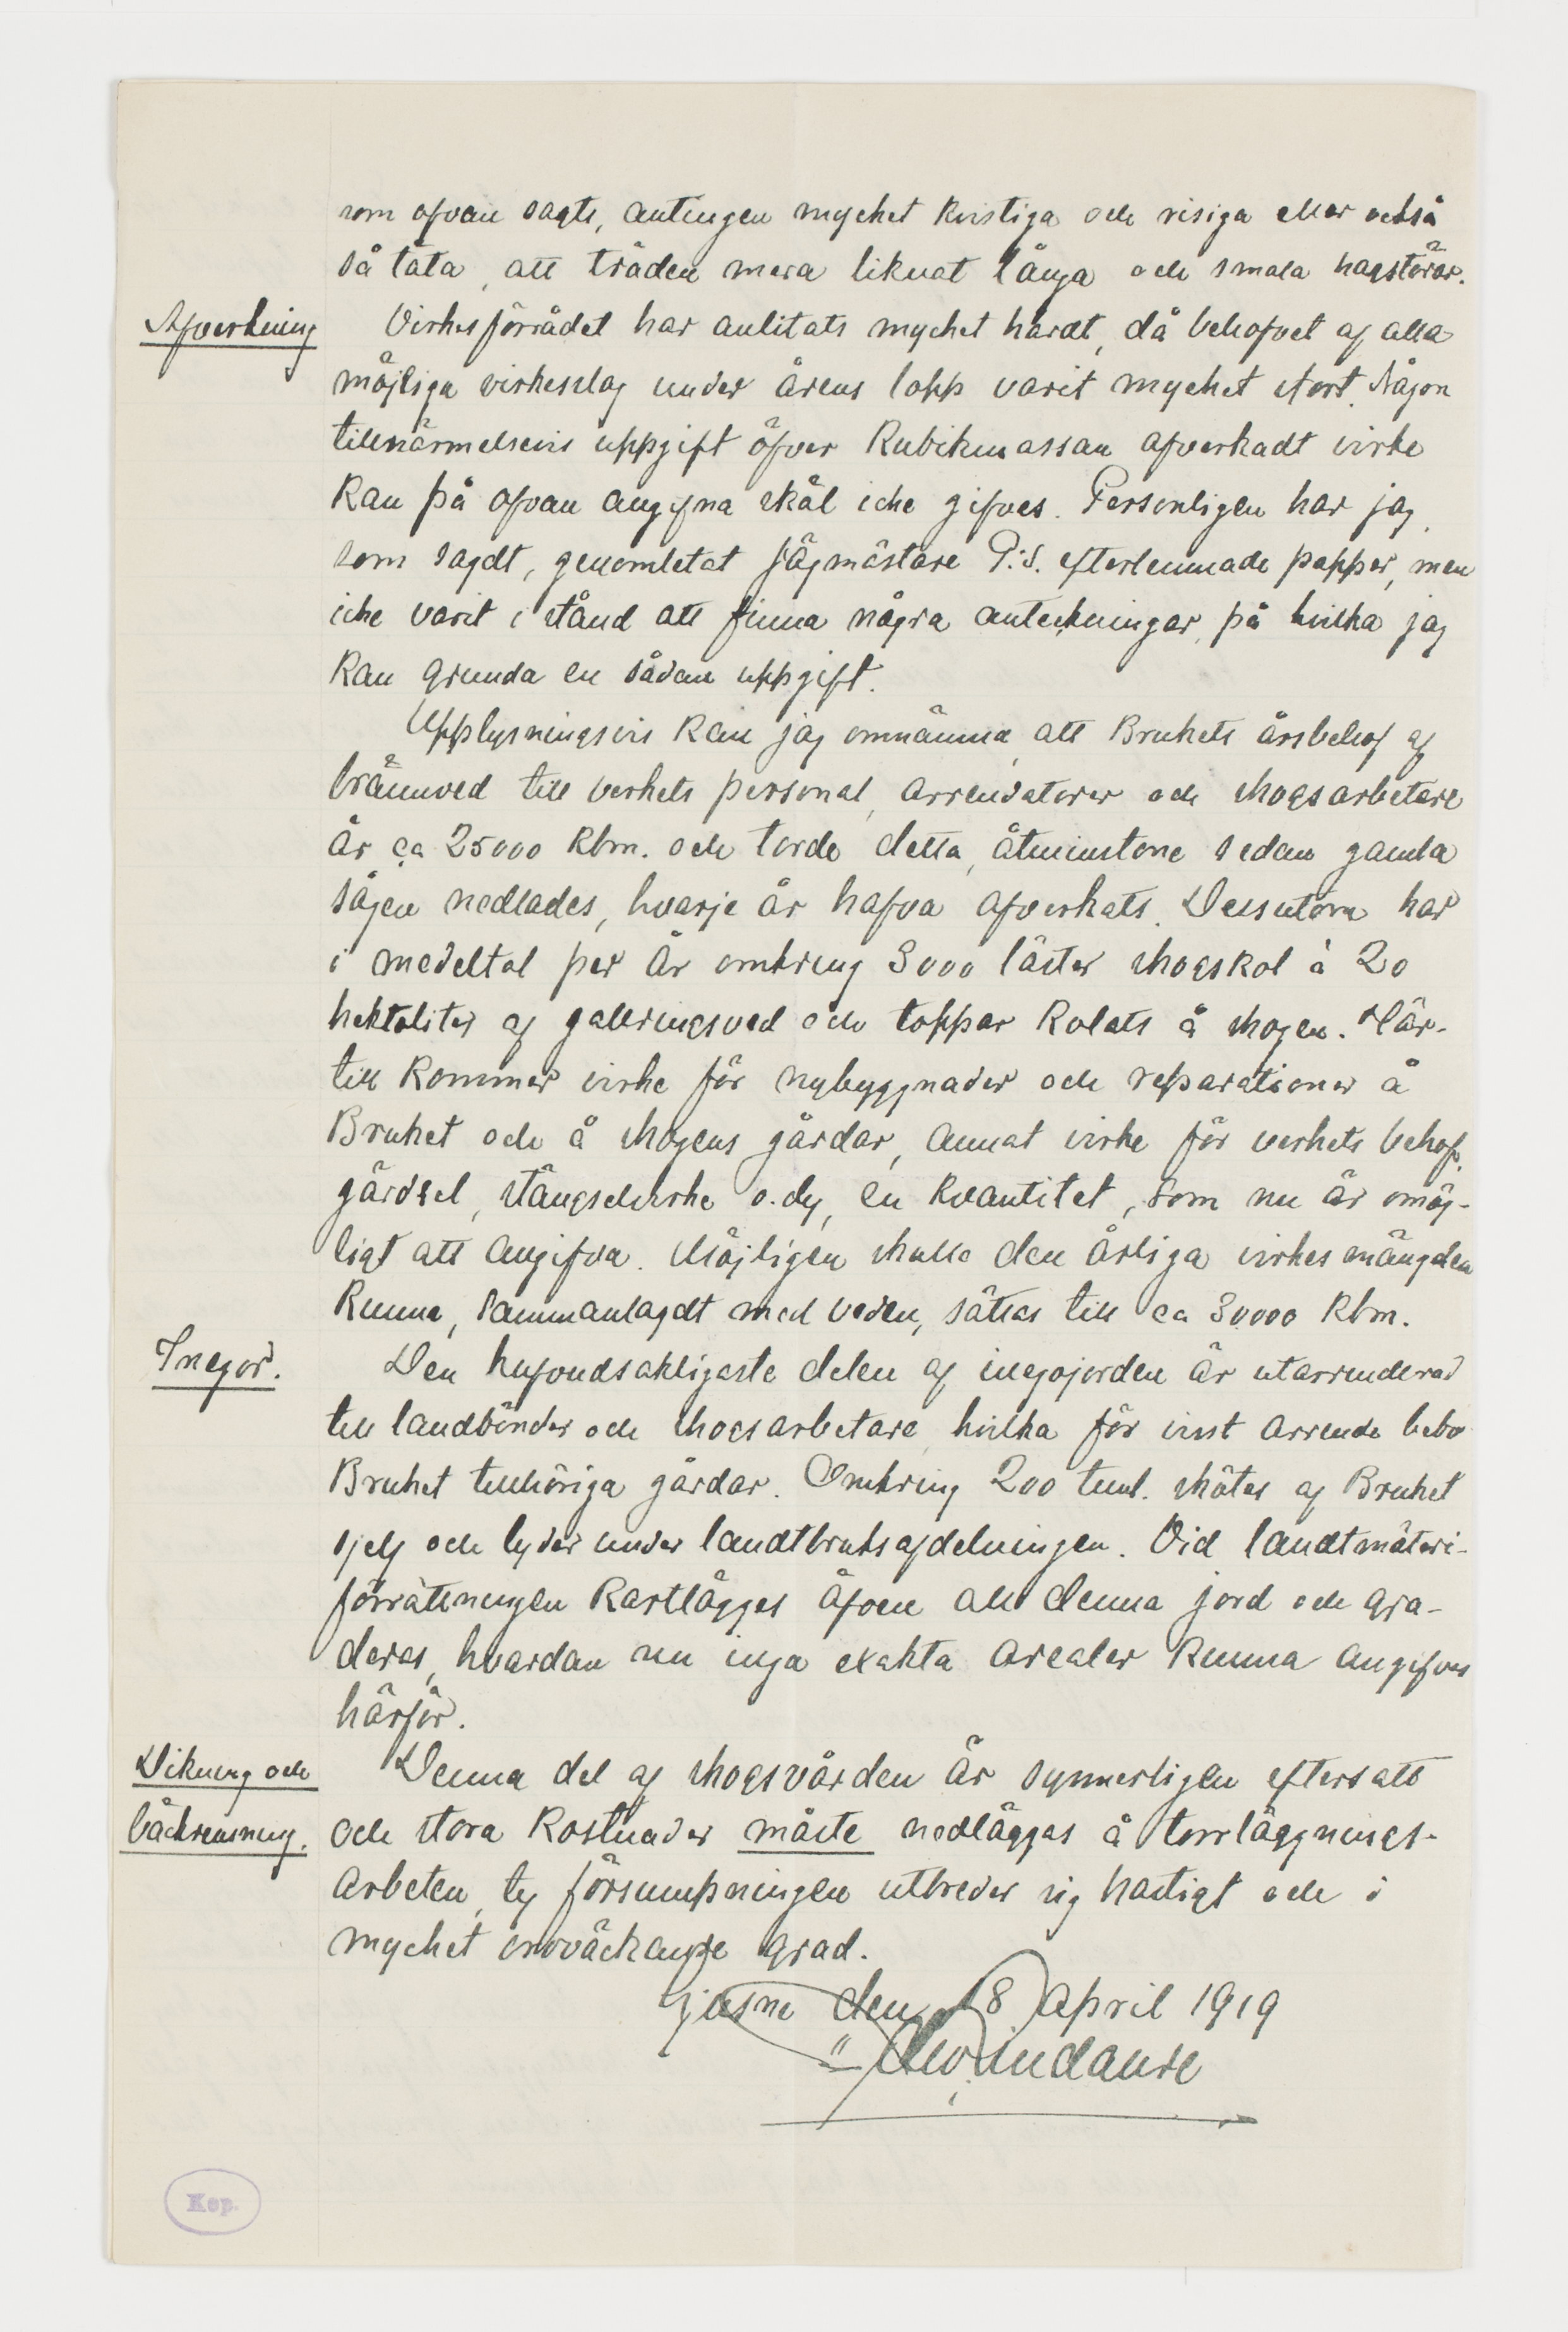 som ofvan sagts, antingen mycket kvistiga och risiga eller också
så täta, att träden mera liknat långa och smala hagstörar.
Afverkning
Virkesförrådet har anlitats mycket hårdt, då behofvet af alla
möjliga virkesslag under årens lopp varit mycket stort. Någon
tillnärmelsevis uppgift öfver kubikmassan afverkadt virke
kan på ofvan angifna skäl icke gifves. Personligen har jag,
som sagdt, genomletat jägmästare P:S. efterlemnade papper, men
icke varit i stånd att finna några anteckningar, på hvilka jag
kan grunda en sådan uppgift.
Upplysningsvis kan jag omnämna, att Brukets årsbehof af
brännved till verkets personal, arrendatorer och skogsarbetare
är ca 25000 kbm. och torde detta, åtminstone sedan gamla
sågen nedlades, hvarje år hafva afverkats. Dessutom har
i medeltal per år omkring 3000 läster skogskol à 20
hektoliter af gallringsved och toppar kolats å skogen. Här-
till kommer virke för nybyggnader och reparationer å
Bruket och å skogens gårdar, annat virke för verkets behof,
gärdsel, stängselvirke o.dy, en kvantitet, som nu är omöj-
ligt att angifva. Möjligen skulle den årliga virkesmängden
kunna, sammanlagdt med veden, sättas till ca 30000 kbm.
Inegor.
Den hufvudsakligaste delen af inegojorden är utarrenderad
till landbönder och skogsarbetare, hvilka för visst arrende bebo
Bruket tillhöriga gårdar. Omkring 200 tunl. skötes af Bruket
sjelf och lyder under landtbruksafdelningen. Vid landtmäteri-
förrättningen kartlägges äfven all denna jord och gra-
deras, hvardan nu inga exakta arealer kunna angifves
härför.
Dikning och
bäckrensning.
Denna del af skogsvården är synnerligen eftersatt
och stora kostnader måste nedläggas å torrläggnings-
arbeten, ty försumpningen utbreder sig hastigt och i
mycket oroväckande grad.
den 18 April 1919
Kop.